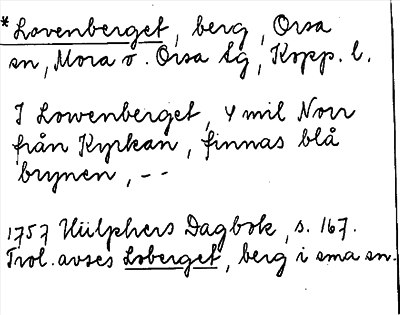 *Lovenberget, berg, Orsa
sn, Mora o. Orsa tg, Kopp. l.
I Lowenberget, 4 mil Norr
från Kyrkan, finnas blå
brynen, --
1757 Hülphers Dagbok, s. 167.
Trol. avses Loberget, berg i sma sn.